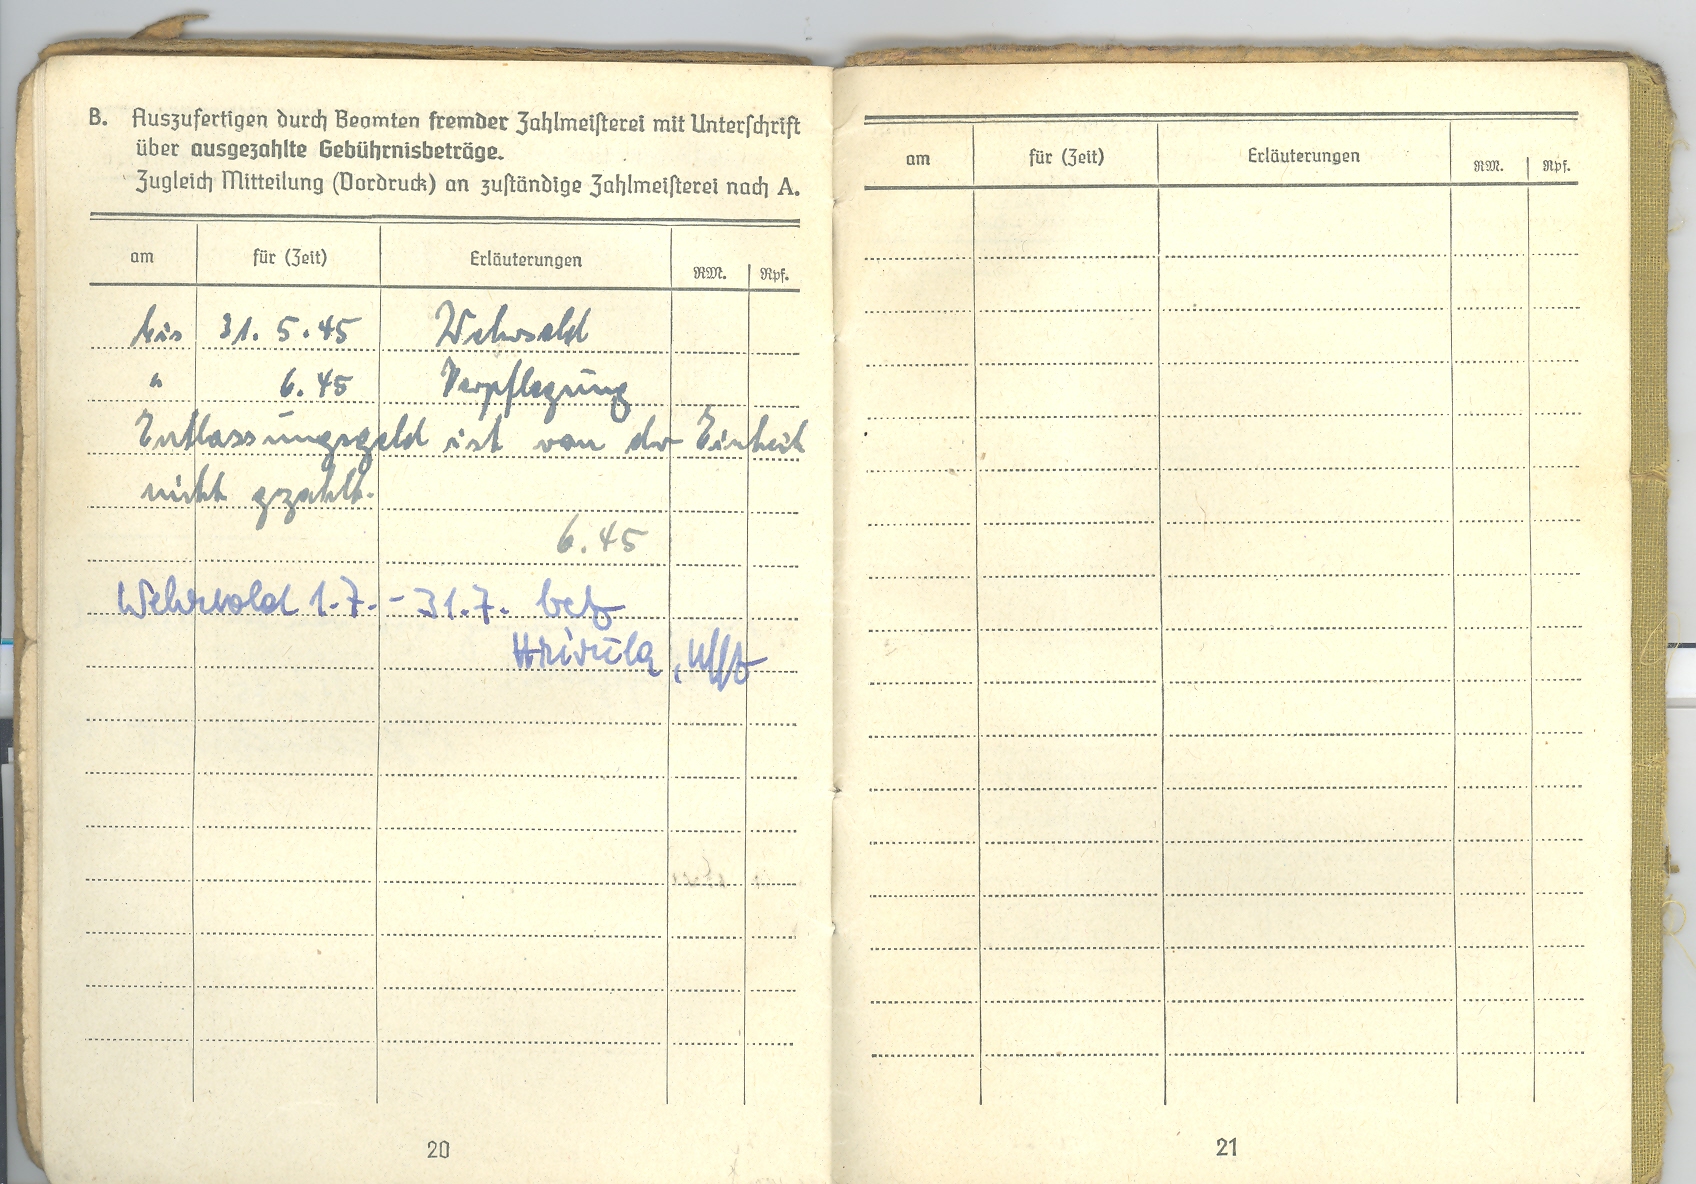 B. Auszufertigen durch Beamten fremder Zahlmeisterei mit Unterschrift
über ausgezahlte Gebührnisbeträge.
Zugleich Mitteilung (Vordruck) an zuständige Zahlmeisterei nach A.
am für (Zeit) Erläuterungen RM. Rpf.
bis 31. 5. 45 Wehrsold
" 6. 45 Verpflegung
Entlassungsgeld ist von der Einheit
nicht gezahlt.
6. 45
Wehrsold 1.7. - 31.7. bez
20
am für (Zeit) Erläuterungen RM. Rpf.
21